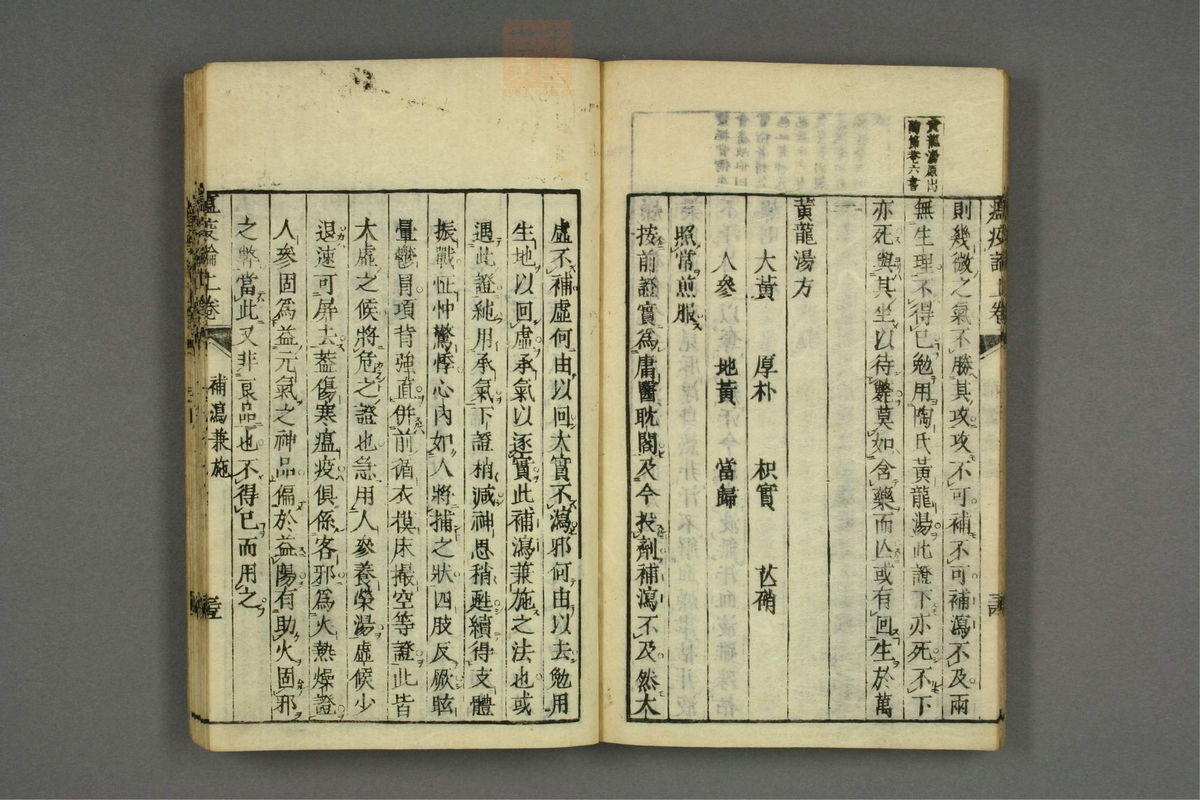 黃龍湯原出
陶節菴六書
瘟疫論上卷
則幾微之氣不勝其攻攻不可補不可補瀉不及兩
無生理不得已勉用陶氏黃龍湯此證下亦死不下
亦死與其坐以待斃莫如含藥而亡或有回生於萬
黃龍湯方
大黃 厚朴 枳實 芒硝
人參 地黃 當歸
照常煎服
按前證實爲庸醫耽閣及今投劑補瀉不及然大
虛不補虛何由以回大實不瀉邪何由以去勉用
生地以回虛承氣以逐實此補瀉兼施之法也或
遇此證純用承氣下證稍減神思稍甦續得支體
振戰怔忡驚悸心內如人將捕之狀四肢反厥眩
暈鬱冒項背強直併前循衣模床撮空等證此皆
大虛之候將危之證也急用人參養榮湯虛候少
退速可屏去蓋傷寒瘟疫俱係客邪爲火熱燥證
人參固爲益元氣之神品偏於益陽有助火固邪
之弊當此又非良品也不得已而用之
瘟疫論上卷
補瀉兼施